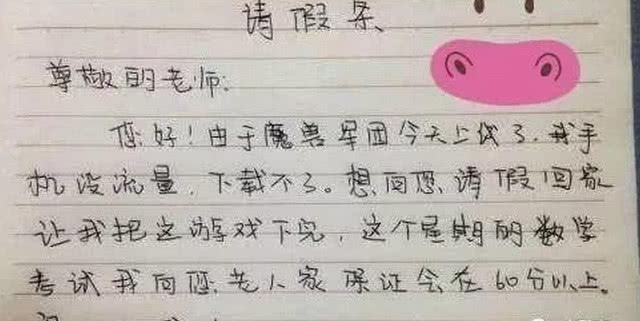 请假条
尊敬的老师:
您好!由于魔兽军团今天上线了.我手
机没流量.下载不了。想向您请假回家
让我把这游戏下完,这个星期的数学
考试我向您老人家保证会在60分以上.